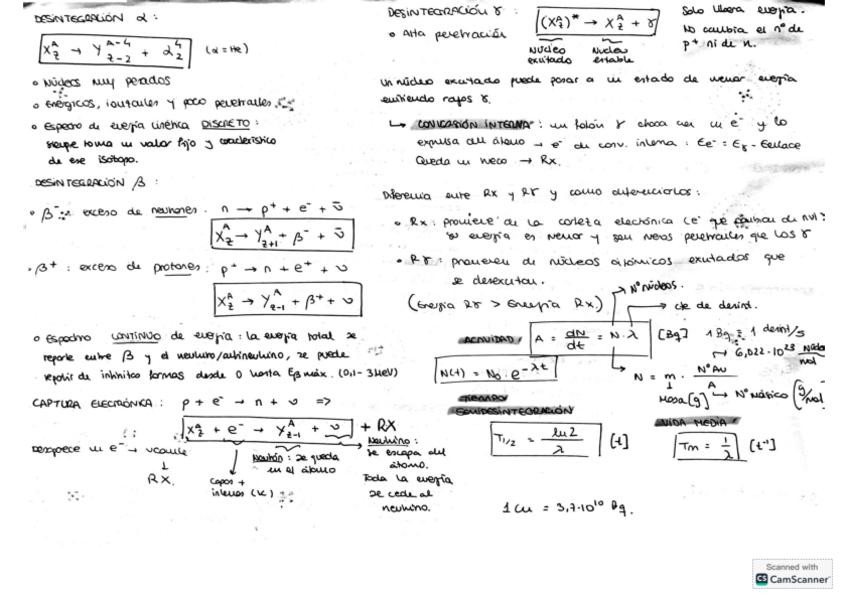 DESINTEGRACIÓN α :
X^A_Z → Y^{A-4}_{Z-2} + α^4_2 (α = He)
• Núcleos muy pesados
• Energicos, ionizantes y poco penetrantes.
• Espectro de energía cinética DISCRETO :
siempre toma un valor fijo y característico
de ese isótopo.
DESINTEGRACIÓN β :
• β⁻ : exceso de neutrones. n → p⁺ + e⁻ + ῡ
X^A_Z → Y^A_{Z+1} + β⁻ + ῡ
• β⁺ : exceso de protones : p⁺ → n + e⁺ + υ
X^A_Z → Y^A_{Z-1} + β⁺ + υ
• Espectro CONTINUO de energía : la energía total se
reparte entre β y el neutrino/antineutrino, se puede
repartir de infinitas formas desde 0 hasta Eβmáx. (0,1 - 3 MeV)
CAPTURA ELECTRÓNICA : p + e⁻ → n + υ =>
X^A_Z + e⁻ → Y^A_{Z-1} + υ + RX
Desaparece un e⁻ → vacante
↓
RX.
Capas +
internas (K)
Neutrón : se queda
en el átomo
Neutrino :
se escapa del
átomo.
Toda la energía
se cede al
neutrino.
DESINTEGRACIÓN γ :
(X^A_Z)* → X^A_Z + γ
Núcleo
excitado
Núcleo
estable
Solo libera energía.
No cambia el nº de
p⁺ ni de n.
• Alta penetración
Un núcleo excitado puede pasar a un estado de menor energía
emitiendo rayos γ.
↳ CONVERSIÓN INTERNA : un fotón γ choca con un e⁻ y lo
expulsa del átomo → e⁻ de conv. interna : Ee⁻ = Eγ - Eenlace
Queda un hueco → RX.
Diferencia entre RX y Rγ y como diferenciarlos :
• RX : proviene de la corteza electrónica (e⁻ que cambian de
su energía es menor y son menos penetrantes que los γ
• Rγ : provienen de núcleos atómicos excitados que
se desexcitan.
(Energía Rγ > Energía RX)
→ Nº núcleos.
→ cte de desint.
ACTIVIDAD A = dN/dt = N · λ [Bq] 1 Bq = 1 desint/s
N(t) = N₀ · e^{-λt}
→ 6,022 · 10²³
N = m · Nº Av / A
Masa [g] → Nº másico [g/mol]
SEMIDESINTEGRACIÓN
T_{1/2} = ln 2 / λ [t]
VIDA MEDIA
Tm = 1/λ [t⁻¹]
1 Cu = 3,7 · 10¹⁰ Bq.
Scanned with
CS CamScanner